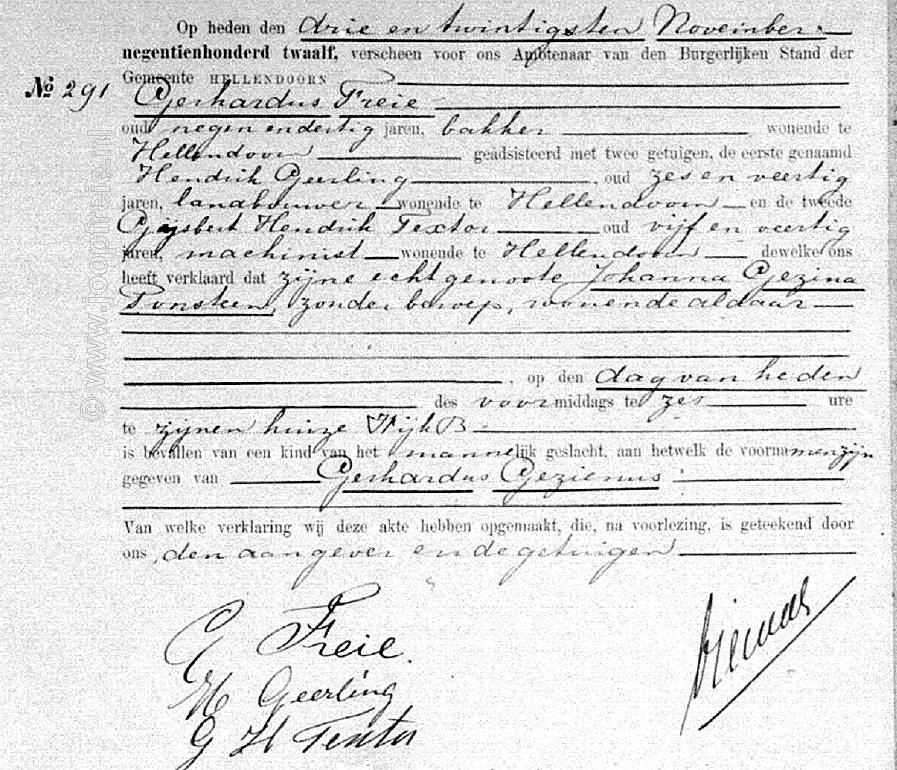 Op heden den drie en twintigsten November
negentienhonderd twaalf, verscheen voor ons Ambtenaar van den Burgerlijken Stand der
Gemeente HELLENDOORN
No 291
Gerhardus Freie
oud negen en dertig jaren, bakker wonende te
Hellendoorn geadsisteerd met twee getuigen, de eerste genaamd
Hendrik Geerling, oud zes en veertig
jaren, landbouwer wonende te Hellendoorn en de tweede
Gijsbert Hendrik Textor oud vijf en veertig
jaren, machinist wonende te Hellendoorn dewelke ons
heeft verklaard dat zijne echtgenoote Johanna Gezina
Ponsteen, zonder beroep, wonende aldaar
, op den dag van heden
des voormiddags te zes ure
te zijnen huize Wijk B
is bevallen van een kind van het mannelijk geslacht, aan hetwelk de voornamen zijn
gegeven van Gerhardus Gezienus.
Van welke verklaring wij deze akte hebben opgemaakt, die, na voorlezing, is geteekend door
ons, den aangever en de getuigen
G Freie.
H Geerling
G H Textor
© www.joopfreis.nl